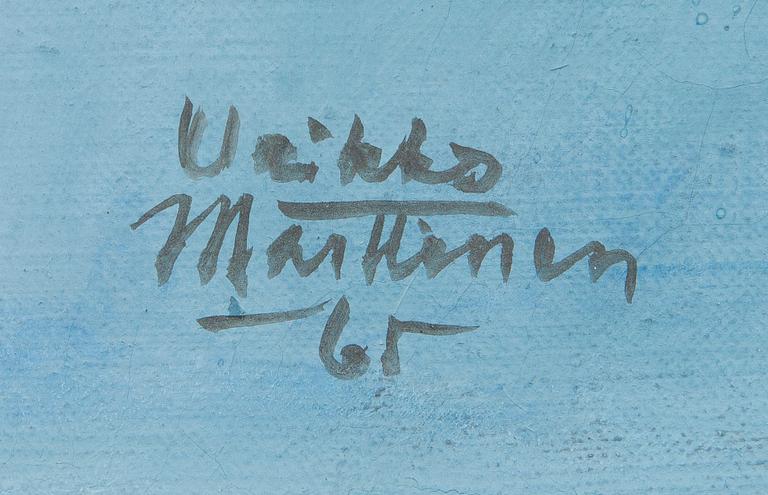 Veikko
Marttinen
-65